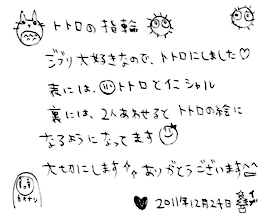 トトロの指輪
ジブリ大好きなので、トトロにしました♡
表には、トトロとイニシャル
裏には、2人あわせるとトトロの絵に
なるようになってます
大切にします ありがとうございます^^
カオナシ
♥ 2011年12月24日